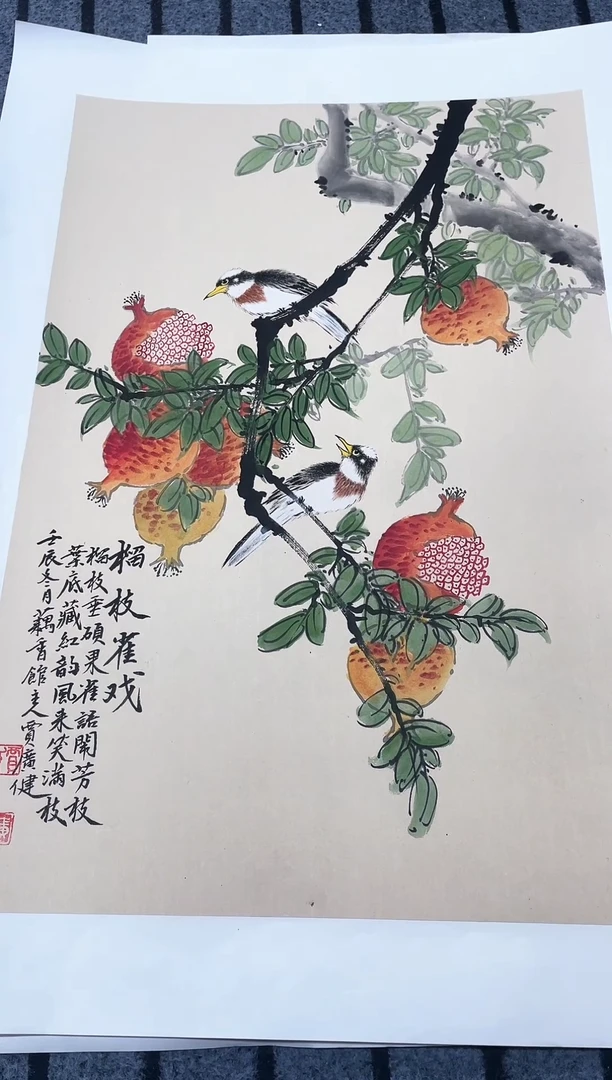 榴枝雀戏
榴枝垂碩果雀語鬧芳枝
葉底藏紅韵風来笑滿枝
壬辰冬月藕香館主人賈廣健